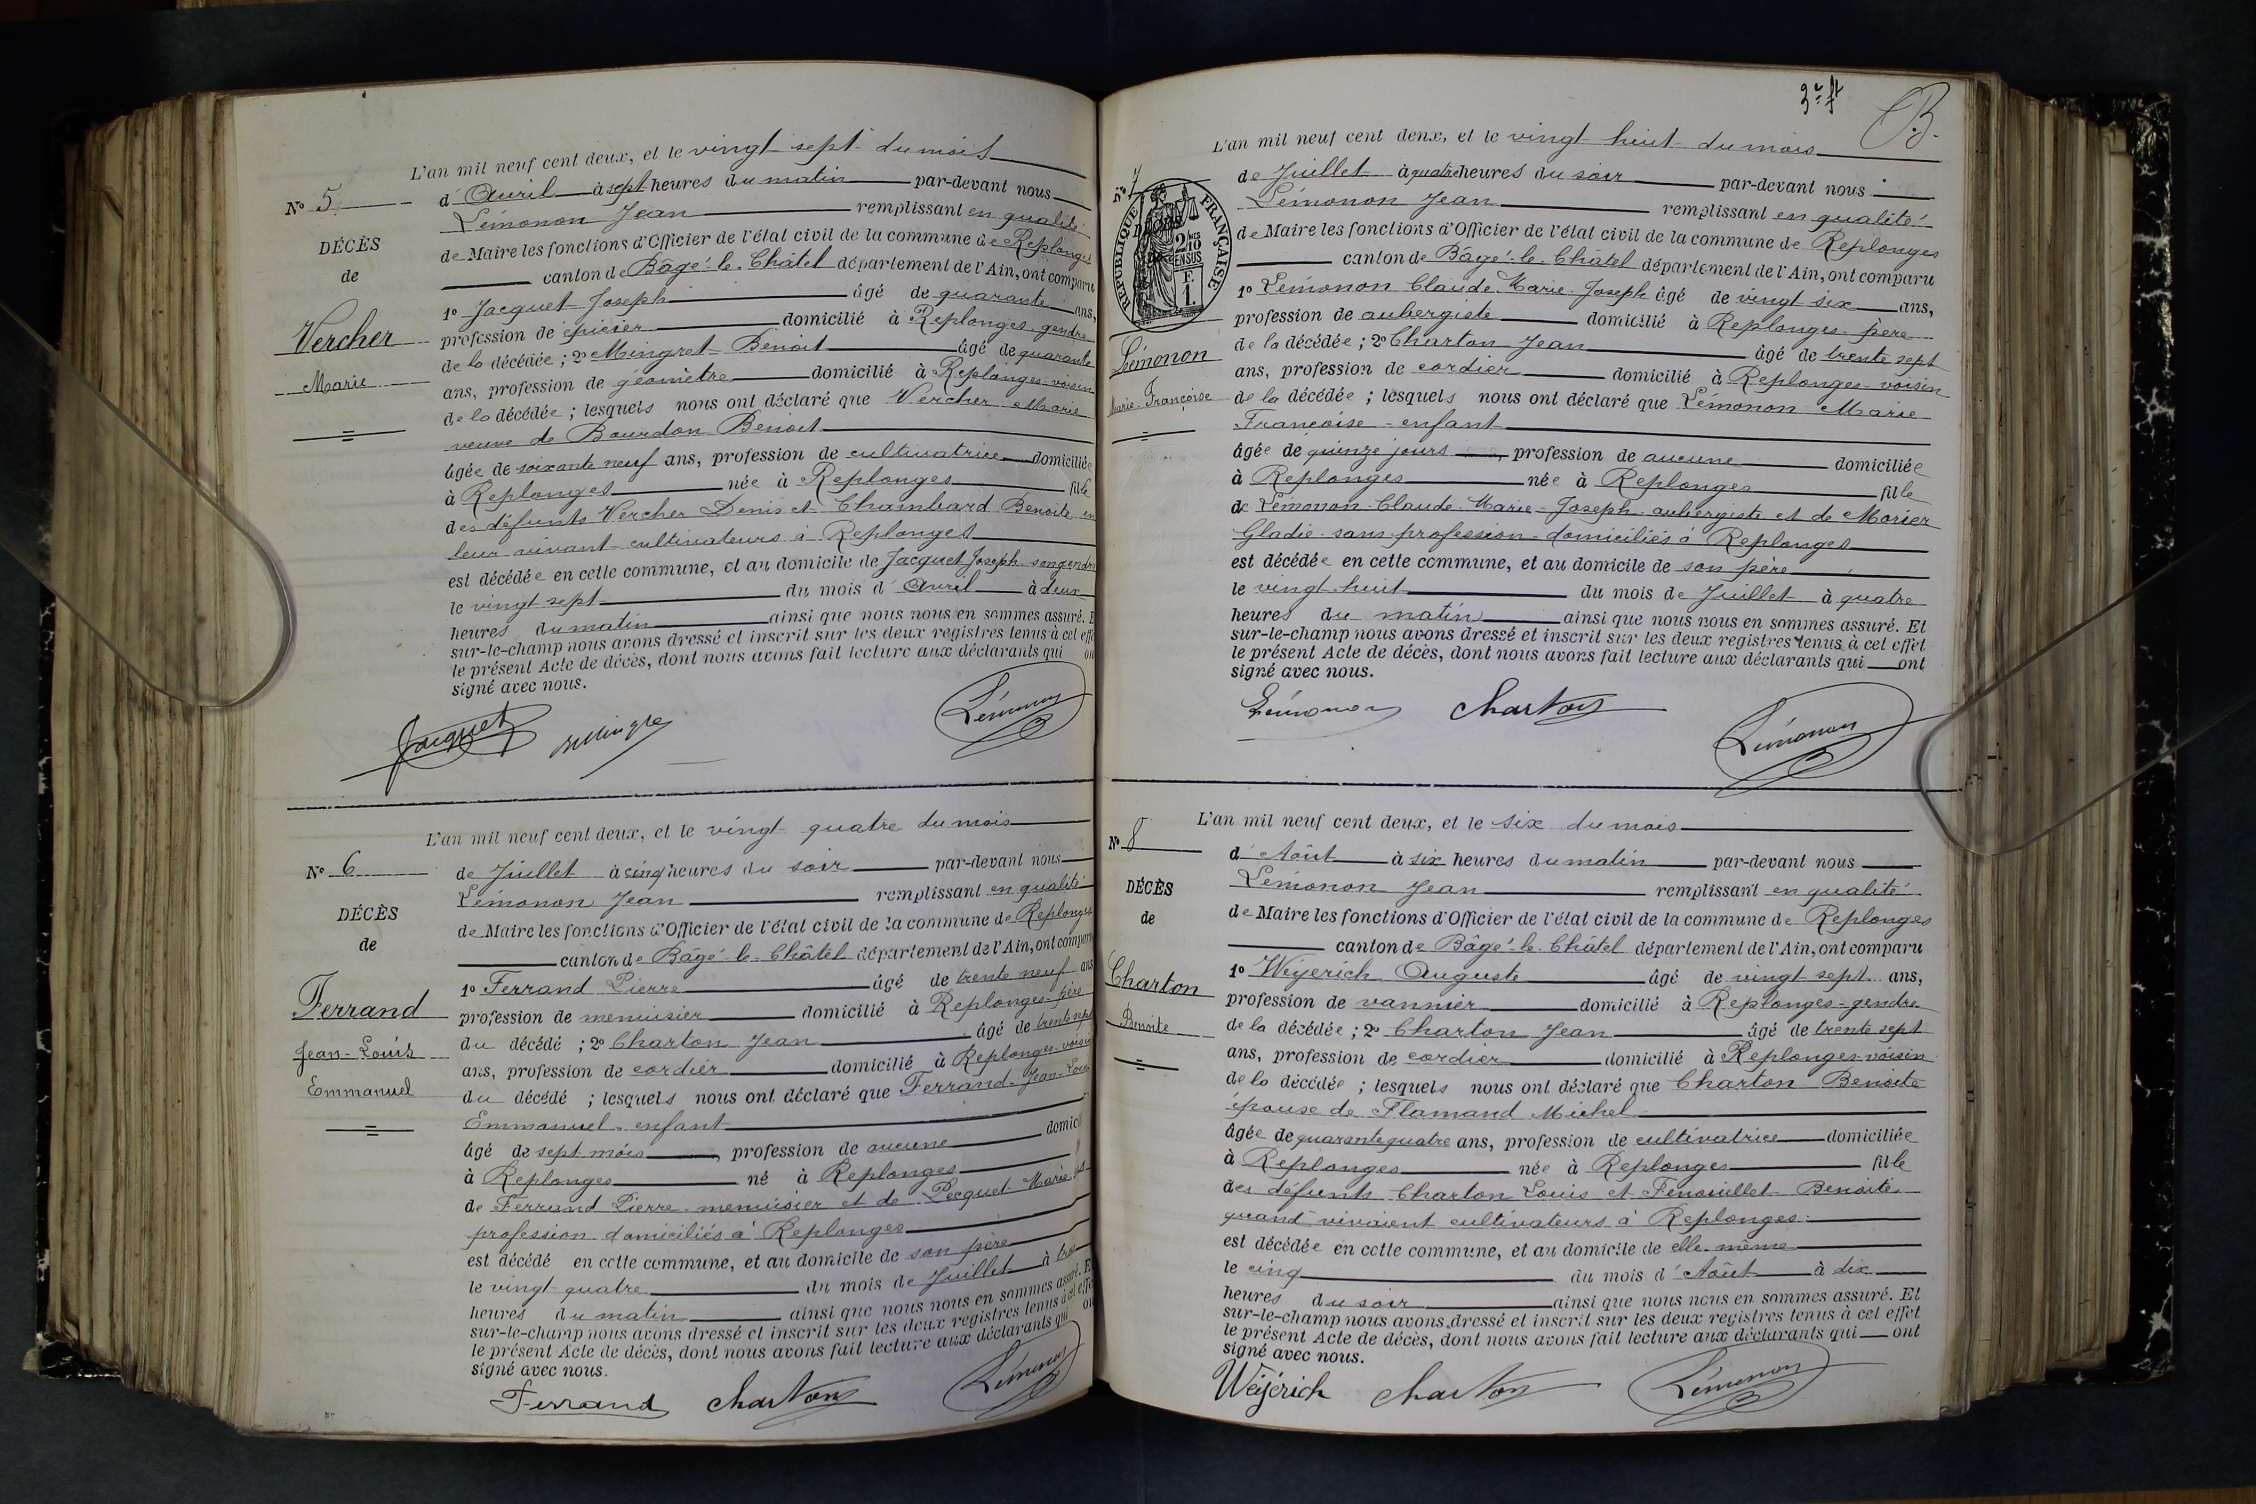 L'an mil neuf cent deux, et le vingt sept du mois
No 5
d'Avril à sept heures du matin par-devant nous
Lémonon Jean remplissant en qualité
DÉCÈS
de Maire les fonctions d'Officier de l'état civil de la commune de Replonges
de
canton de Bâgé-le-Châtel département de l'Ain, ont comparu
1o Jacquet Joseph âgé de quarante ans,
Vercher
profession de épicier domicilié à Replonges gendre
de la décédée ; 2o Mingret Benoit âgé de quarante
Marie
ans, profession de géomètre domicilié à Replonges-voisin
de la décédée ; lesquels nous ont déclaré que Vercher Marie
veuve de Bourdon Benoit
âgée de soixante neuf ans, profession de cultivatrice domiciliée
à Replonges née à Replonges fille
des défunts Vercher Denis et Chambard Benoite en
leur vivant cultivateurs à Replonges
est décédée en cette commune, et au domicile de Jacquet Joseph son gendre
le vingt sept du mois d'Avril à deux
heures du matin ainsi que nous nous en sommes assuré. E
sur-le-champ nous avons dressé et inscrit sur les deux registres tenus à cet effe
le présent Acte de décès, dont nous avons fait lecture aux déclarants qui on
signé avec nous.
Jacquet Lémonon
L'an mil neuf cent deux, et le vingt quatre du mois
No 6
de Juillet à cinq heures du soir par-devant nous
Lémonon Jean remplissant en qualité
DÉCÈS
de Maire les fonctions d'Officier de l'état civil de la commune de Replonges
de
canton de Bâgé-le-Châtel département de l'Ain, ont comparu
1o Ferrand Pierre âgé de trente neuf ans
Ferrand
profession de menuisier domicilié à Replonges-père
du décédé ; 2o Charton Jean âgé de trente sept
Jean-Louis
ans, profession de cordier domicilié à Replonges-voisin
Emmanuel
du décédé ; lesquels nous ont déclaré que Ferrand Jean-Louis
Emmanuel enfant
âgé de sept mois, profession de aucune domicil
à Replonges né à Replonges
de Ferrand Pierre menuisier et de Pecquet Marie
profession domiciliés à Replonges
est décédé en cette commune, et au domicile de son père
le vingt quatre du mois de Juillet à trois
heures du matin ainsi que nous nous en sommes assuré. E
sur-le-champ nous avons dressé et inscrit sur les deux registres tenus à cet effe
le présent Acte de décès, dont nous avons fait lecture aux déclarants qui on
signé avec nous.
Ferrand Charton Lémonon
L'an mil neuf cent deux, et le vingt huit du mois
No 7
de Juillet à quatre heures du soir par-devant nous
Lémonon Jean remplissant en qualité
RÉPUBLIQUE FRANÇAISE
DÉCÈS
2/10 EN SUS
F. 1.
de Maire les fonctions d'Officier de l'état civil de la commune de Replonges
canton de Bâgé-le-Châtel département de l'Ain, ont comparu
1o Lémonon Claude-Marie-Joseph âgé de vingt six ans,
profession de aubergiste domicilié à Replonges-père
Lémonon
de la décédée ; 2o Charton Jean âgé de trente sept
ans, profession de cordier domicilié à Replonges-voisin
Marie-Françoise
de la décédée ; lesquels nous ont déclaré que Lémonon Marie
Françoise-enfant
âgée de quinze jours, profession de aucune domiciliée
à Replonges née à Replonges fille
de Lémonon-Claude-Marie-Joseph-aubergiste et de Morier
Gladie-sans profession-domiciliés à Replonges
est décédée en cette commune, et au domicile de son père
le vingt huit du mois de Juillet à quatre
heures du matin ainsi que nous nous en sommes assuré. Et
sur-le-champ nous avons dressé et inscrit sur les deux registres tenus à cet effet
le présent Acte de décès, dont nous avons fait lecture aux déclarants qui ont
signé avec nous.
Lémonon Charton Lémonon
L'an mil neuf cent deux, et le six du mois
No 8
d'Août à six heures du matin par-devant nous
Lémonon Jean remplissant en qualité
DÉCÈS
de Maire les fonctions d'Officier de l'état civil de la commune de Replonges
de
canton de Bâgé-le-Châtel département de l'Ain, ont comparu
1o Weyerich Auguste âgé de vingt sept ans,
Charton
profession de vannier domicilié à Replonges-gendre
Benoite
de la décédée ; 2o Charton Jean âgé de trente sept
ans, profession de cordier domicilié à Replonges-voisin
de la décédée ; lesquels nous ont déclaré que Charton Benoite
épouse de Flamand Michel
âgée de quarante quatre ans, profession de cultivatrice domiciliée
à Replonges née à Replonges fille
des défunts Charton Louis et Fenouillet Benoite
quand vivaient cultivateurs à Replonges
est décédée en cette commune, et au domicile de elle-même
le cinq du mois d'Août à dix
heures du soir ainsi que nous nous en sommes assuré. Et
sur-le-champ nous avons dressé et inscrit sur les deux registres tenus à cet effet
le présent Acte de décès, dont nous avons fait lecture aux déclarants qui ont
signé avec nous.
Weyérich Charton Lémonon